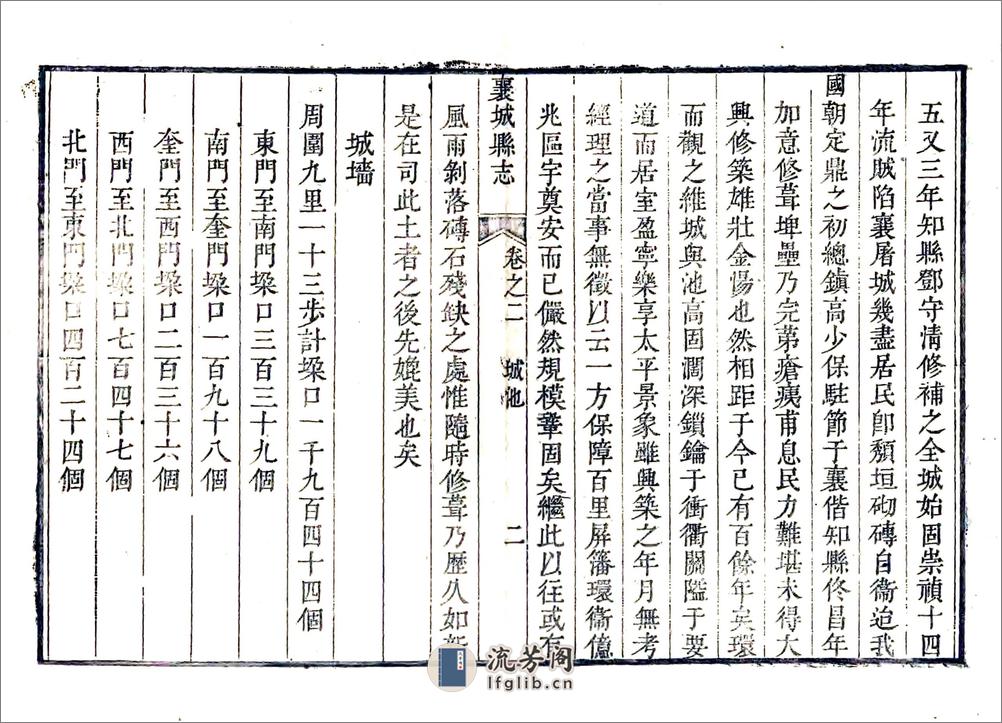 五又三年知縣鄧守情修補之全城始固崇禎十四
年流賊陷襄屠城幾盡居民卽頽垣砌磚自衞迨我
國朝定鼎之初總鎮高少保駐節于襄偕知縣佟昌年
加意修葺埤壘乃完第瘡痍甫息民力難堪未得大
興修築雄壯金湯也然相距于今已有百餘年矣環
而觀之維城與池高固濶深鎖鑰于衝衢關隘于要
道而居室盈寧樂享太平景象雖興築之年月無考
經理之當事無徵以云一方保障百里屏籓環衞億
兆區宇奠安而已儼然規模鞏固矣繼此以往或有
襄城縣志
卷之二
城池
二
風雨剝落磚石殘缺之處惟隨時修葺乃歷久如新
是在司此土者之後先媲美也矣
城墻
周圍九里一十三步計垜口一千九百四十四個
東門至南門垜口三百三十九個
南門至奎門垜口一百九十八個
奎門至西門垜口二百三十六個
西門至北門垜口七百四十七個
北門至東門垜口四百二十四個
流芳阁
lfglib.cn